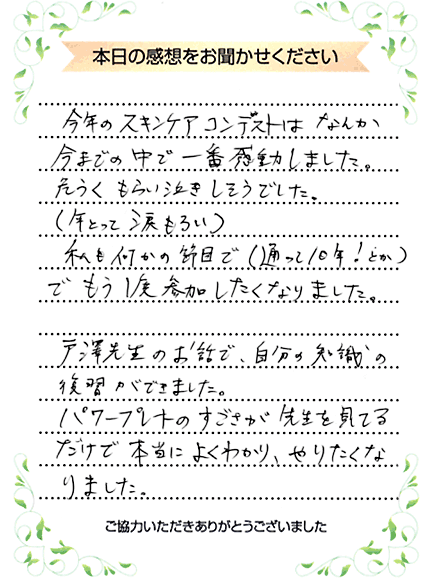 本日の感想をお聞かせください
今年のスキンケアコンテストは なんか
今までの中で一番感動しました。
危うく もらい泣きしそうでした。
(年とって 涙もろい)
私も何かの節目で(通って10年!とか)
で もう1度参加したくなりました。
戸澤先生のお話で、自分の知識の
復習ができました。
パワープレートのすごさが先生を見てる
だけで本当によくわかり、やりたくな
りました。
ご協力いただきありがとうございました